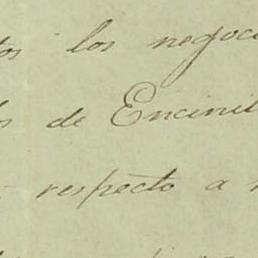 los negoc
de Encinil
respecto a